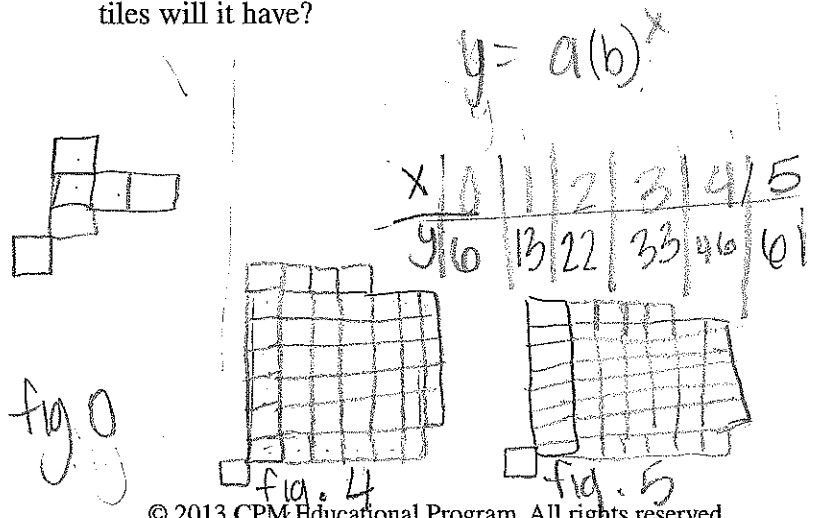 tiles will it have?
y = a(b)^x
x | 0 | 1 | 2 | 3 | 4 | 5
y | 6 | 13 | 22 | 33 | 46 | 61
fig 0
fig. 4
fig. 5
© 2013 CPM Educational Program. All rights reserved